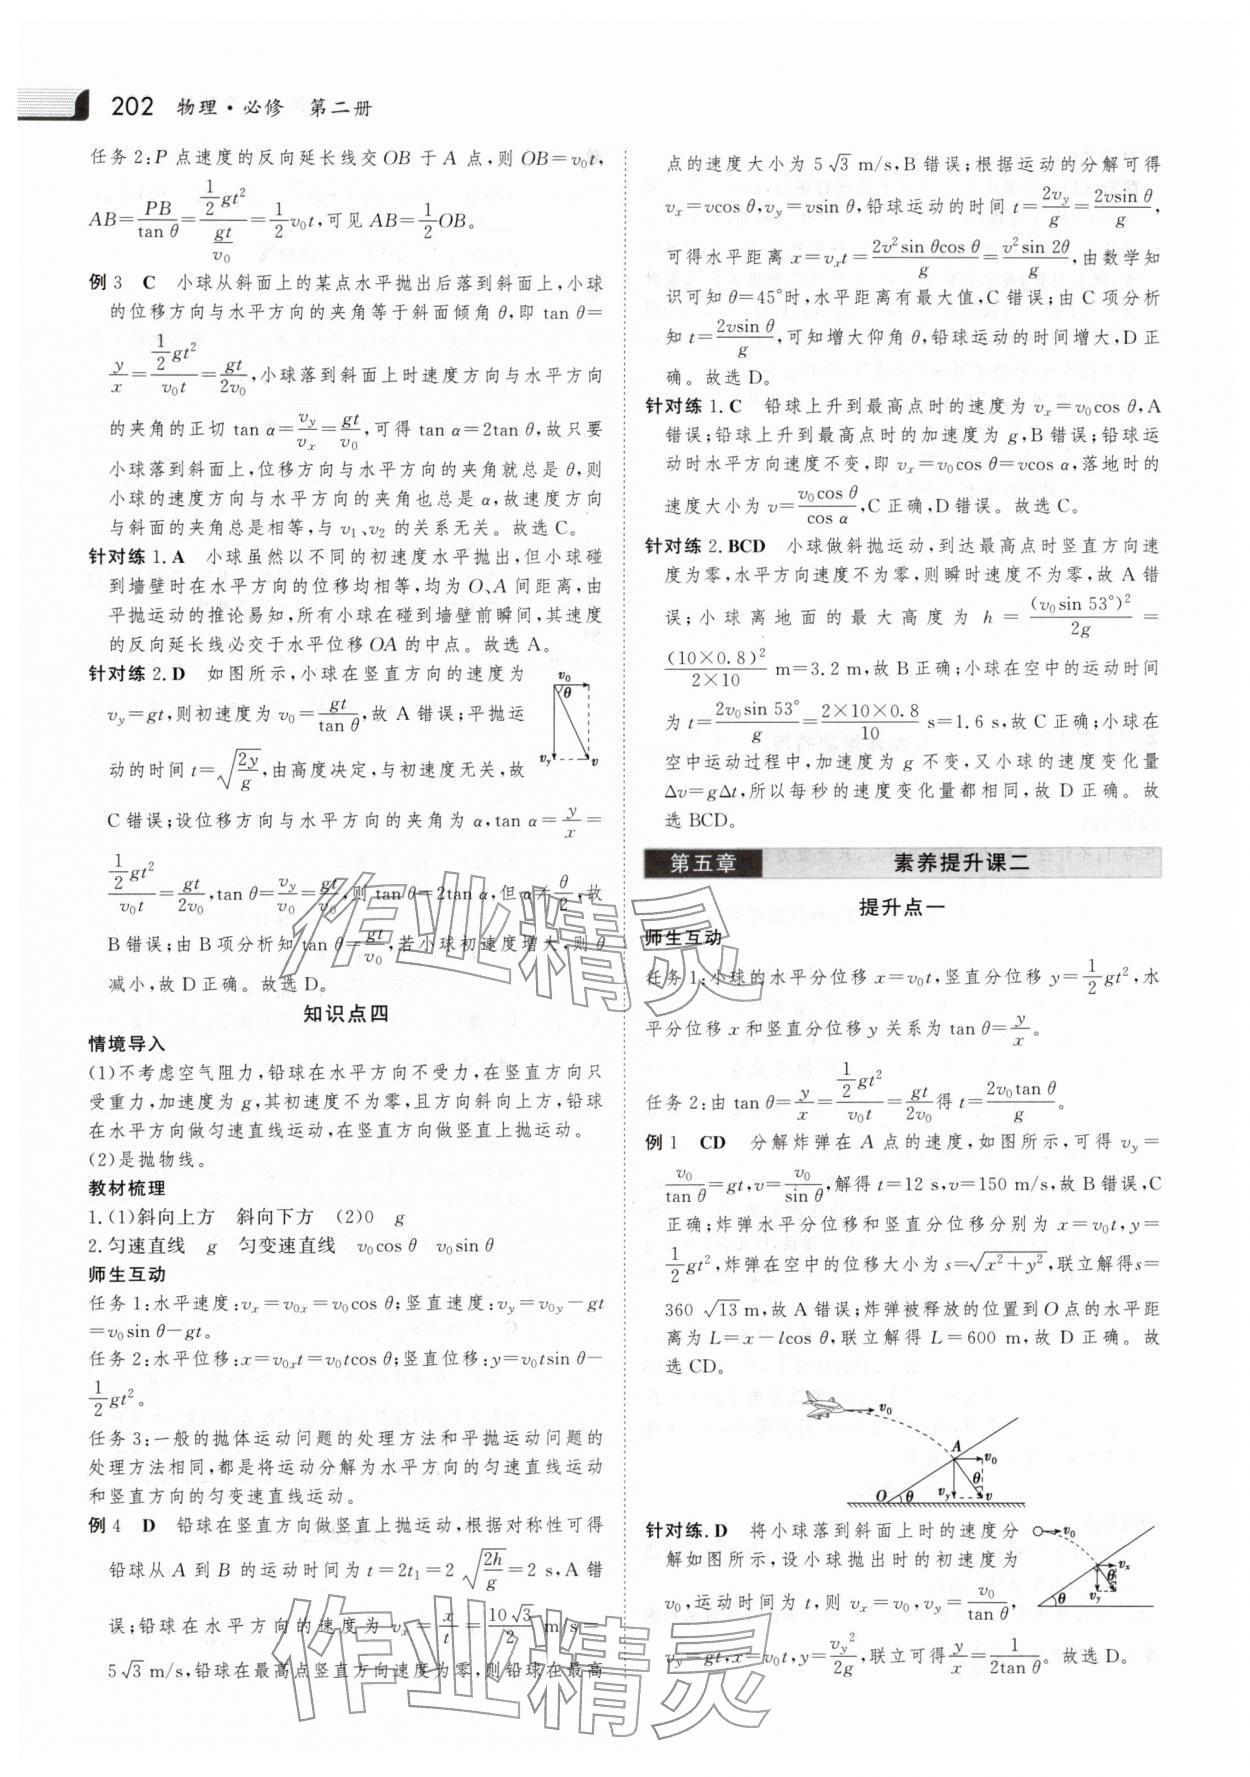 202 物理·必修 第二册
任务2:P点速度的反向延长线交OB于A点,则OB=v₀t,
AB=PB/tan θ=(1/2 gt²)/(gt/v₀)=1/2 v₀t,可见AB=1/2 OB。
例3 C 小球从斜面上的某点水平抛出后落到斜面上,小球
的位移方向与水平方向的夹角等于斜面倾角θ,即tan θ=
y/x=(1/2 gt²)/(v₀t)=gt/2v₀,小球落到斜面上时速度方向与水平方向
的夹角的正切tan α=v_y/v_x=gt/v₀,可得tan α=2tan θ,故只要
小球落到斜面上,位移方向与水平方向的夹角就总是θ,则
小球的速度方向与水平方向的夹角也总是α,故速度方向
与斜面的夹角总是相等,与v₁、v₂的关系无关。故选C。
针对练1.A 小球虽然以不同的初速度水平抛出,但小球碰
到墙壁时在水平方向的位移均相等,均为O、A间距离,由
平抛运动的推论易知,所有小球在碰到墙壁前瞬间,其速度
的反向延长线必交于水平位移OA的中点。故选A。
针对练2.D 如图所示,小球在竖直方向的速度为
v_y=gt,则初速度为v₀=gt/tan θ,故A错误;平抛运
动的时间t=√(2y/g),由高度决定,与初速度无关,故
C错误;设位移方向与水平方向的夹角为α,tan α=y/x=
(1/2 gt²)/(v₀t)=gt/2v₀,tan θ=v_y/v₀=gt/v₀,则tan θ=2tan α,但α≠θ/2,故
B错误;由B项分析知tan θ=gt/v₀,若小球初速度增大,则θ
减小,故D正确。故选D。
v₀
θ
v_y
v
知识点四
情境导入
(1)不考虑空气阻力,铅球在水平方向不受力,在竖直方向只
受重力,加速度为g,其初速度不为零,且方向斜向上方,铅球
在水平方向做匀速直线运动,在竖直方向做竖直上抛运动。
(2)是抛物线。
教材梳理
1.(1)斜向上方 斜向下方 (2)0 g
2.匀速直线 g 匀变速直线 v₀cos θ v₀sin θ
师生互动
任务1:水平速度:v_x=v₀ₓ=v₀cos θ;竖直速度:v_y=v₀y-gt
=v₀sin θ-gt。
任务2:水平位移:x=v₀ₓt=v₀tcos θ;竖直位移:y=v₀tsin θ-
1/2 gt²。
任务3:一般的抛体运动问题的处理方法和平抛运动问题的
处理方法相同,都是将运动分解为水平方向的匀速直线运动
和竖直方向的匀变速直线运动。
例4 D 铅球在竖直方向做竖直上抛运动,根据对称性可得
铅球从A到B的运动时间为t=2t₁=2√(2h/g)=2 s,A错
误;铅球在水平方向的速度为v_x=x/t=10√3/2 m/s=
5√3 m/s,铅球在最高点竖直方向速度为零,则铅球在最高
点的速度大小为5√3 m/s,B错误;根据运动的分解可得
v_x=vcos θ,v_y=vsin θ,铅球运动的时间t=2v_y/g=2vsin θ/g,
可得水平距离x=v_xt=2v²sin θcos θ/g=v²sin 2θ/g,由数学知
识可知θ=45°时,水平距离有最大值,C错误;由C项分析
知t=2vsin θ/g,可知增大仰角θ,铅球运动的时间增大,D正
确。故选D。
针对练1.C 铅球上升到最高点时的速度为v_x=v₀cos θ,A
错误;铅球上升到最高点时的加速度为g,B错误;铅球运
动时水平方向速度不变,即v_x=v₀cos θ=vcos α,落地时的
速度大小为v=v₀cos θ/cos α,C正确,D错误。故选C。
针对练2.BCD 小球做斜抛运动,到达最高点时竖直方向速
度为零,水平方向速度不为零,则瞬时速度不为零,故A错
误;小球离地面的最大高度为h=(v₀sin 53°)²/2g=
(10×0.8)²/2×10 m=3.2 m,故B正确;小球在空中的运动时间
为t=2v₀sin 53°/g=2×10×0.8/10 s=1.6 s,故C正确;小球在
空中运动过程中,加速度为g不变,又小球的速度变化量
Δv=gΔt,所以每秒的速度变化量都相同,故D正确。故
选BCD。
第五章 素养提升课二
提升点一
师生互动
任务1:小球的水平分位移x=v₀t,竖直分位移y=1/2 gt²,水
平分位移x和竖直分位移y关系为tan θ=y/x。
任务2:由tan θ=y/x=(1/2 gt²)/(v₀t)=gt/2v₀得t=2v₀tan θ/g。
例1 CD 分解炸弹在A点的速度,如图所示,可得v_y=
v₀/tan θ=gt,v=v₀/sin θ,解得t=12 s,v=150 m/s,故B错误,C
正确;炸弹水平分位移和竖直分位移分别为x=v₀t,y=
1/2 gt²,炸弹在空中的位移大小为s=√(x²+y²),联立解得s=
360√13 m,故A错误;炸弹被释放的位置到O点的水平距
离为L=x-lcos θ,联立解得L=600 m,故D正确。故
选CD。
v₀
A
v₀
θ
O
θ
v_y
v
针对练.D 将小球落到斜面上时的速度分
解如图所示,设小球抛出时的初速度为
v₀,运动时间为t,则v_x=v₀,v_y=v₀/tan θ,
v_y=gt,x=v₀t,y=v_y²/2g,联立可得y/x=1/2tan θ。故选D。
v₀
v_x
θ
v_y
θ
作业精灵
作业精灵